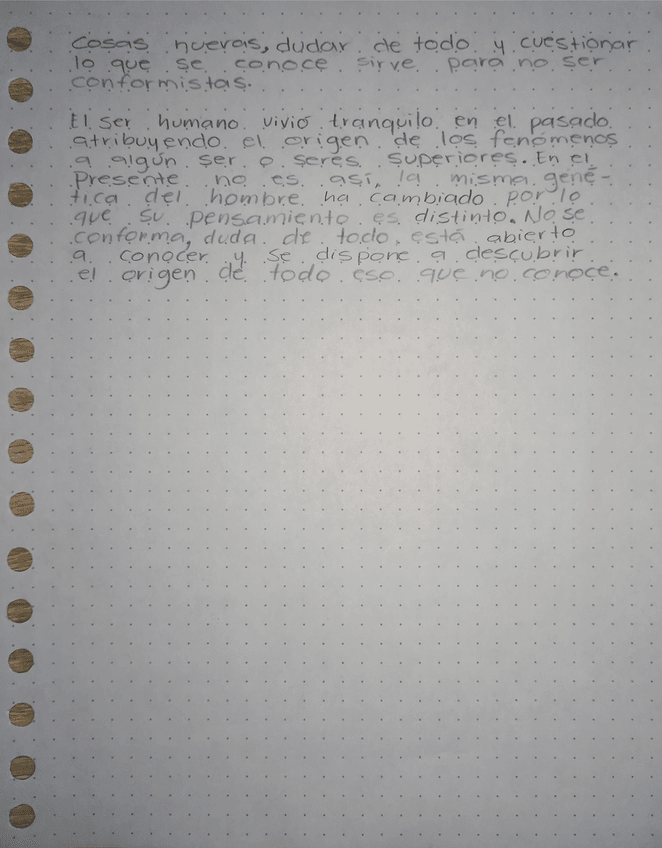 Cosas nuevas, dudar de todo y cuestionar
lo que se conoce sirve para no ser
conformistas.
El ser humano vivió tranquilo en el pasado
atribuyendo el origen de los fenómenos
a algún ser o seres superiores. En el
presente no es así, la misma gené-
tica del hombre ha cambiado por lo
que su pensamiento es distinto. No se
conforma, duda de todo, está abierto
a conocer y se dispone a descubrir
el origen de todo eso que no conoce.